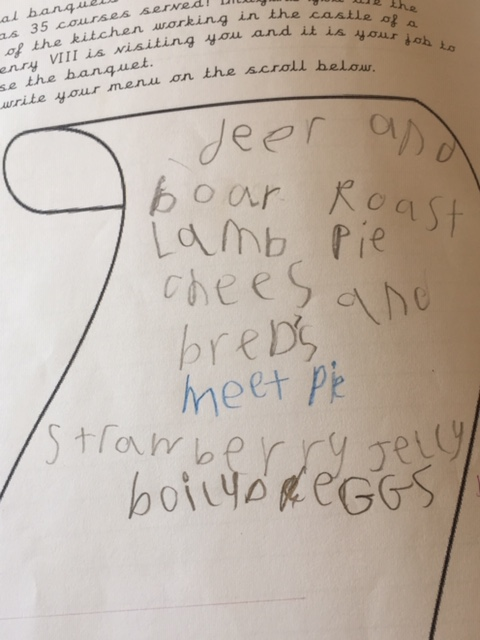 al banquets
as 35 courses served! Imagine you are the
of the kitchen working in the castle of a
enry VIII is visiting you and it is your job to
se the banquet.
write your menu on the scroll below.
deer and
boar Roast
Lamb Pie
chees and
breD's
meet Pie
Strawberry Jelly
boilyD eGGS